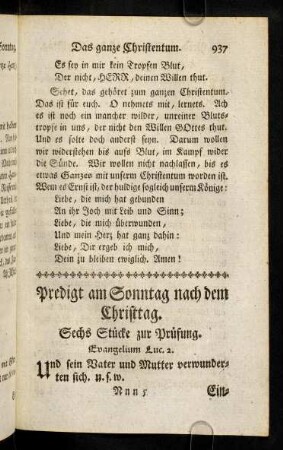 Das ganze Christentum. 937
Es sey in mir kein Tropfen Blut,
Der nicht, HERR, deinen Willen thut.
Sehet, das gehöret zum ganzen Christentum.
Das ist für euch. O nehmets mit, lernets. Ach
es ist noch ein mancher wilder, unreiner Bluts-
tropfe in uns, der nicht den Willen GOttes thut.
Und es solte doch anderst seyn. Darum wollen
wir widerstehen bis aufs Blut, im Kampf wider
die Sünde. Wir wollen nicht nachlassen, bis es
etwas Ganzes mit unserm Christentum worden ist.
Wem es Ernst ist, der huldige sogleich unserm Könige:
Liebe, die mich hat gebunden
An ihr Joch mit Leib und Sinn;
Liebe, die mich überwunden,
Und mein Herz hat ganz dahin:
Liebe, Dir ergeb ich mich,
Dein zu bleiben ewiglich. Amen!
Predigt am Sonntag nach dem
Christtag.
Sechs Stücke zur Prüfung.
Evangelium Luc. 2.
Und sein Vater und Mutter verwunder-
ten sich. u. s. w.
Nnn 5 Ein-